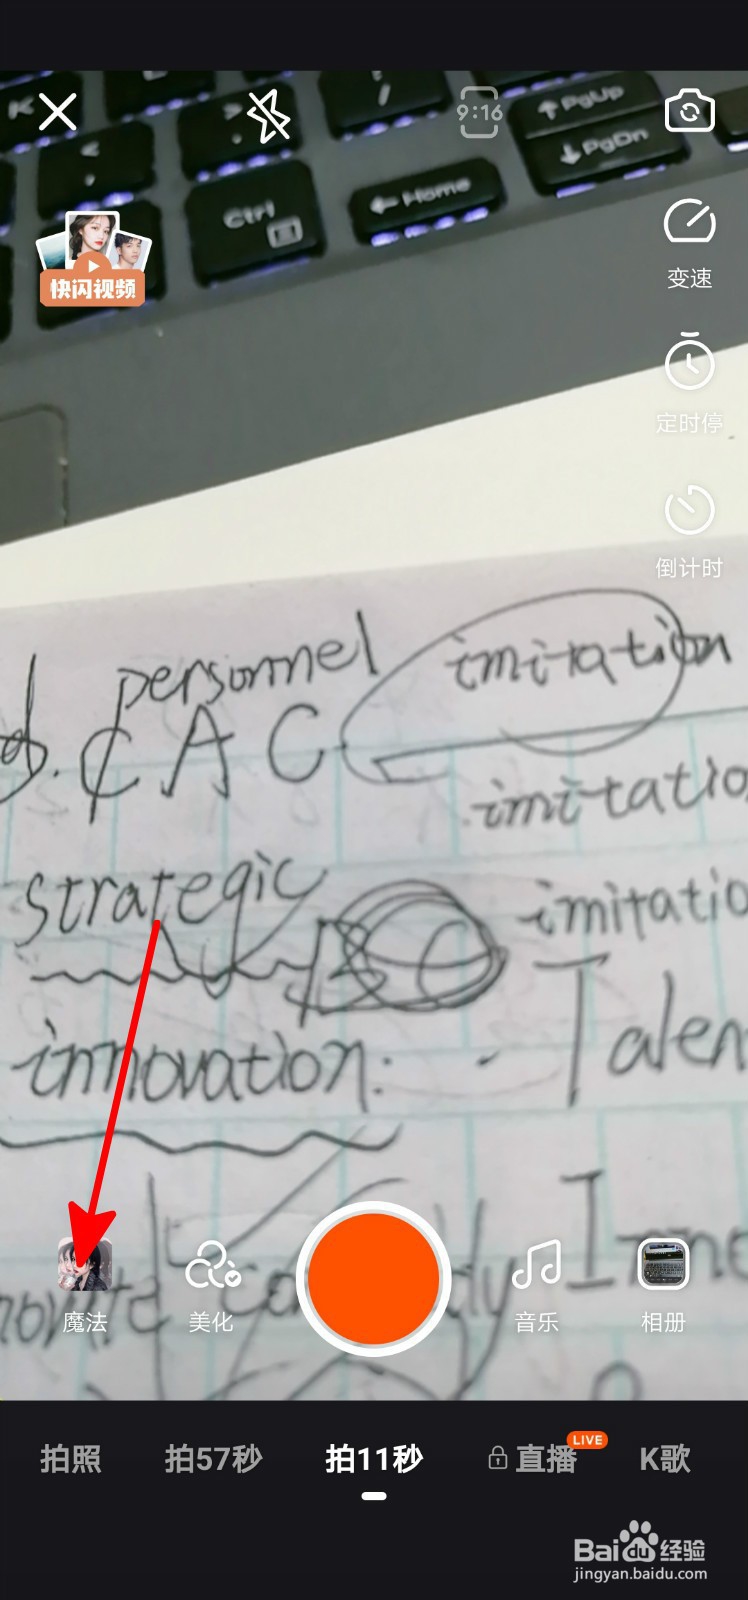 PgUp
9:16
PgDn
Home
Ctrl
快闪视频
变速
定时停
倒计时
personnel
imitation
CAC
imitatio
strategic
imitatio
Talen
innovation:
魔法
美化
音乐
相册
拍照
拍57秒
拍11秒
直播
LIVE
K歌
Baidu经验
jingyan.baidu.com